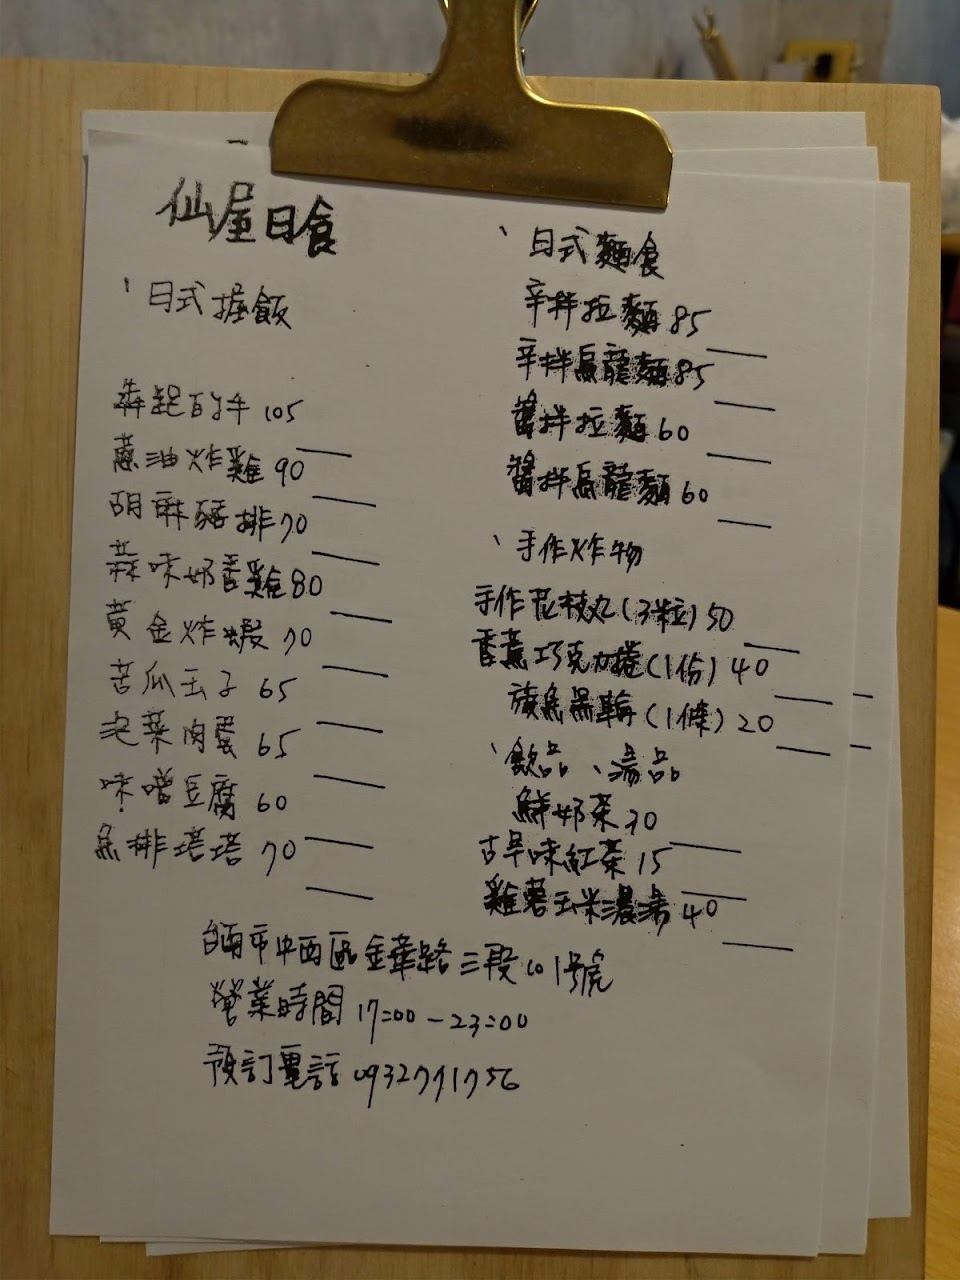 仙屋日食
、日式握飯
犇起司牛 105
蔥油炸雞 90
胡麻豬排 70
蒜味奶香雞 80
黃金炸蝦 70
苦瓜玉子 65
泡菜肉蛋 65
味噌豆腐 60
魚排塔塔 70
、日式麵食
辛拌拉麵 85
辛拌烏龍麵 85
醬拌拉麵 60
醬拌烏龍麵 60
、手作炸物
手作花枝丸(3粒) 50
香蕉巧克力捲(1份) 40
旗魚黑輪(1條) 20
、飲品、湯品
鮮奶茶 30
古早味紅茶 15
雞蓉玉米濃湯 40
台南市中西區金華路三段101號
營業時間 17:00-23:00
預訂電話 0932771756